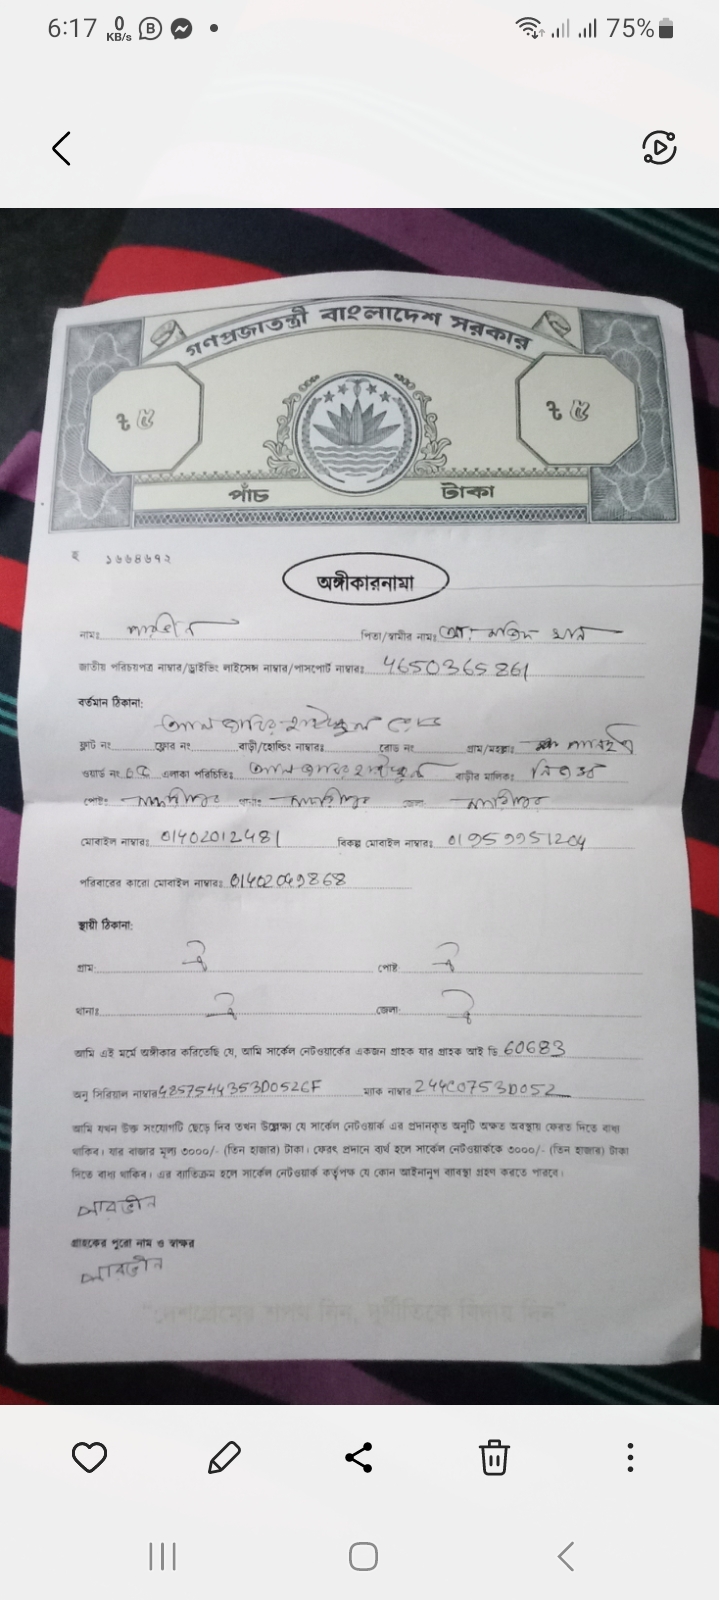 6:17 0 KB/s B 75%
গণপ্রজাতন্ত্রী বাংলাদেশ সরকার
৳ ৫ ৳ ৫
পাঁচ টাকা
ছ ১৬৬৪৬৭২
অঙ্গীকারনামা
নামঃ পারভীন পিতা/স্বামীর নামঃ আঃ মজিদ খান
জাতীয় পরিচয়পত্র নাম্বার/ড্রাইভিং লাইসেন্স নাম্বার/পাসপোর্ট নাম্বারঃ 4650365861
বর্তমান ঠিকানা:
আল জাবির হাইস্কুল রোড
ফ্লাট নং ফ্লোর নং বাড়ী/হোল্ডিং নাম্বারঃ রোড নং গ্রাম/মহল্লাঃ
ওয়ার্ড নং এলাকা পরিচিতিঃ আল জাবির হাইস্কুল বাড়ীর মালিকঃ নিজস্ব
পোষ্টঃ মাদারীপুর থানাঃ মাদারীপুর জেলা মাদারীপুর
মোবাইল নাম্বারঃ 01402012481 বিকল্প মোবাইল নাম্বারঃ 01959951204
পরিবারের কারো মোবাইল নাম্বারঃ 01402049868
স্থায়ী ঠিকানা:
গ্রাম ঐ পোষ্ট ঐ
থানাঃ ঐ জেলা ঐ
আমি এই মর্মে অঙ্গীকার করিতেছি যে, আমি সার্কেল নেটওয়ার্কের একজন গ্রাহক যার গ্রাহক আই ডি 60683
অনু সিরিয়াল নাম্বার 4857544353D0526F ম্যাক নাম্বার 244C0753D052
আমি যখন উক্ত সংযোগটি ছেড়ে দিব তখন উল্লেখ্য যে সার্কেল নেটওয়ার্ক এর প্রদানকৃত অনুটি অক্ষত অবস্থায় ফেরত দিতে বাধ্য
থাকিব। যার বাজার মূল্য ৩০০০/- (তিন হাজার) টাকা। ফেরৎ প্রদানে ব্যর্থ হলে সার্কেল নেটওয়ার্ককে ৩০০০/- (তিন হাজার) টাকা
দিতে বাধ্য থাকিব। এর ব্যতিক্রম হলে সার্কেল নেটওয়ার্ক কর্তৃপক্ষ যে কোন আইনানুগ ব্যবস্থা গ্রহণ করতে পারবে।
পারভীন
গ্রাহকের পুরো নাম ও স্বাক্ষর
পারভীন
"দেশপ্রেমের শপথ নিন, দুর্নীতিকে বিদায় দিন"